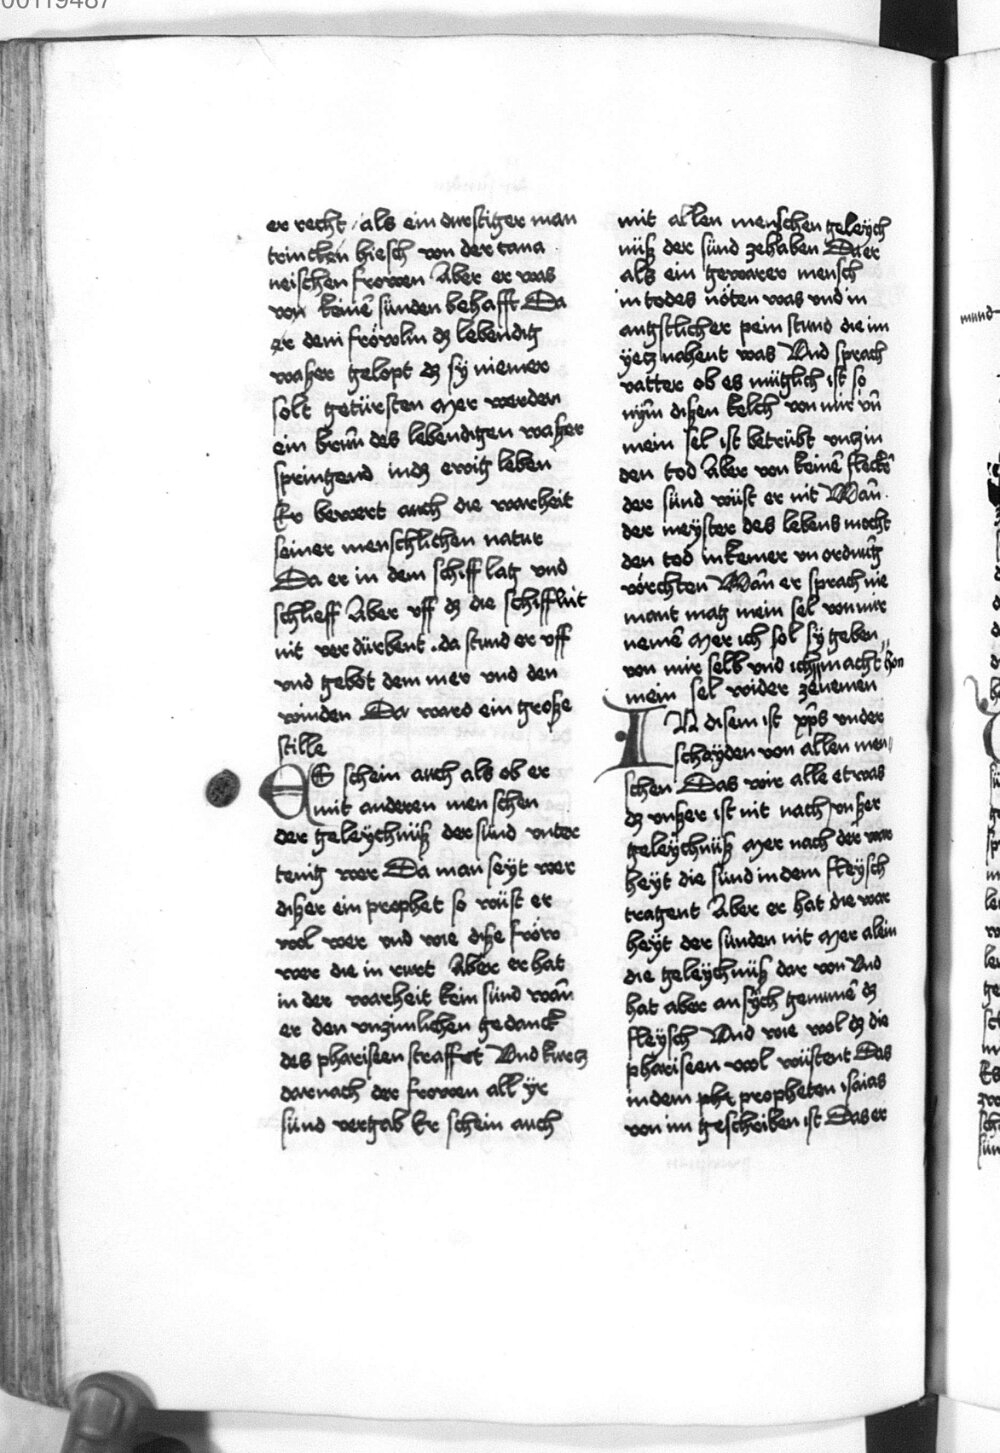 er recht / als ein durstiger man
trincken hiesch von der cana
neischen frowen Aber er was
von keinē sünden behafft Da
er dem fröwlin dz lebendig
waßer gelopt dz sÿ niemer
solt getürsten Mer werden
ein brūn des lebendigen waßer
springend indz ewig leben
Er bewert auch die warheit
seiner menschlichen natur
Da er in dem schiff lag vnd
schlieff Aber vff dz die schifflüt
nit verdürbent . da stund er vff
vnd gebot dem mer vnd den
winden Da ward ein große
stille
ES schein auch als ob er
mit anderen menschen
der geleÿchnüß der sünd vnter
tenig wer Da man seÿt wer
dißer ein prophet so wüst er
wol wer vnd wie diße fröw
wer die in rürt Aber er hat
in der warheit kein sünd wān
er den vnzimlichen gedanck
des phariseen straffet Vnd kurcz
darnach der frowen all ÿr
sünd vergab Er schein auch
mit allen menschen geleÿch
nüß der sünd zehaben Da er
als ein gewarer mensch
in todes nöten was vnd in
angstlicher pein stund die im
ÿecz nahent was Vnd sprach
vatter ob es müglich ist so
nÿm dißen kelch von mir vn̄
mein sel ist betrübt vncz in
den tod Aber von keinē fleckē
der sünd wüst er nit Wān
der meÿster des lebens mocht
den tod in keiner vnordnūg
vörchten Wān er sprach nie
mant mag mein sel von mir
nemē Mer ich sol sÿ geben
von mir selb vnd ich macht hon
mein sel wider zenemen
IN disem ist xp̄s vnder
schaÿden von allen men
schen Das wir alle etwas
dz vnßer ist nit nach vnßer
geleÿchnüß Mer nach der war
heÿt die sünd in dem fleÿsch
tragent Aber er hat die war
heÿt der sünden nit Mer alein
die geleÿchnüß dar von Vnd
hat aber an sÿch genumē dz
fleÿsch Vnd wie wol dz die
phariseen wol wüstent Das
in dem propheten isaias
von im geschriben ist Das er